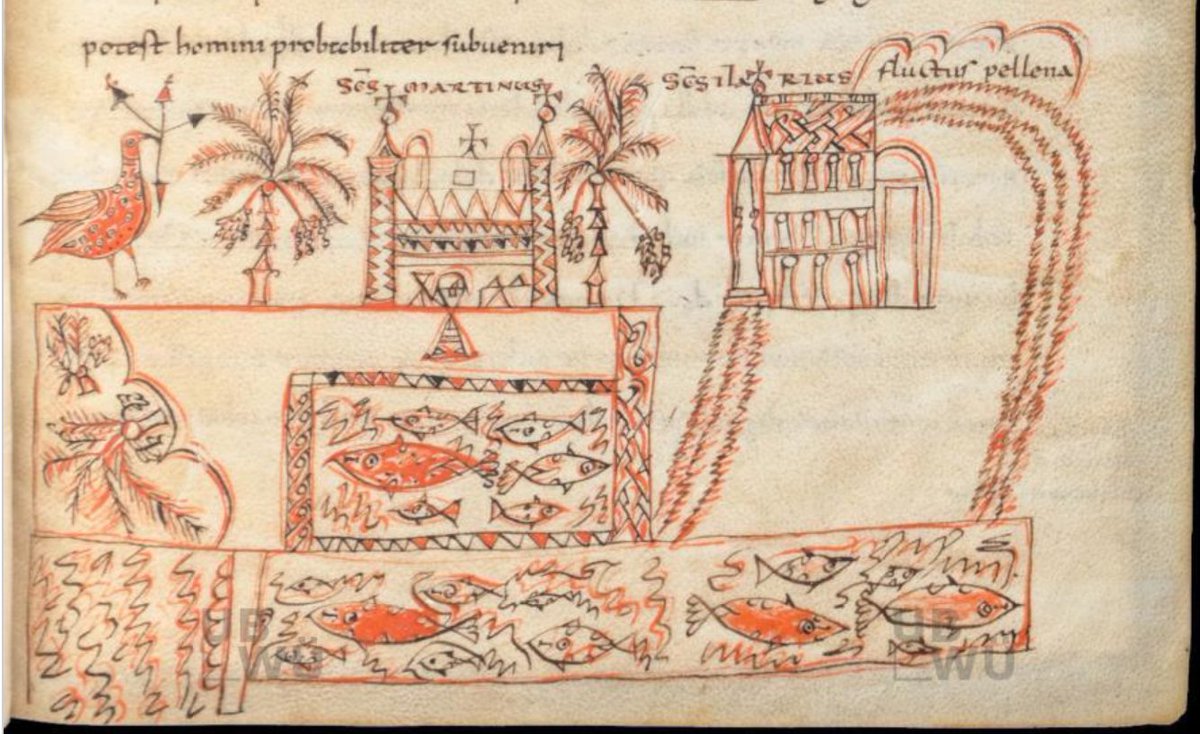 potest homini probabiliter subueniri
Scs MARTINUS
Scs ilARIUS
fluctus pellena
UB
WÜ
UB
WÜ